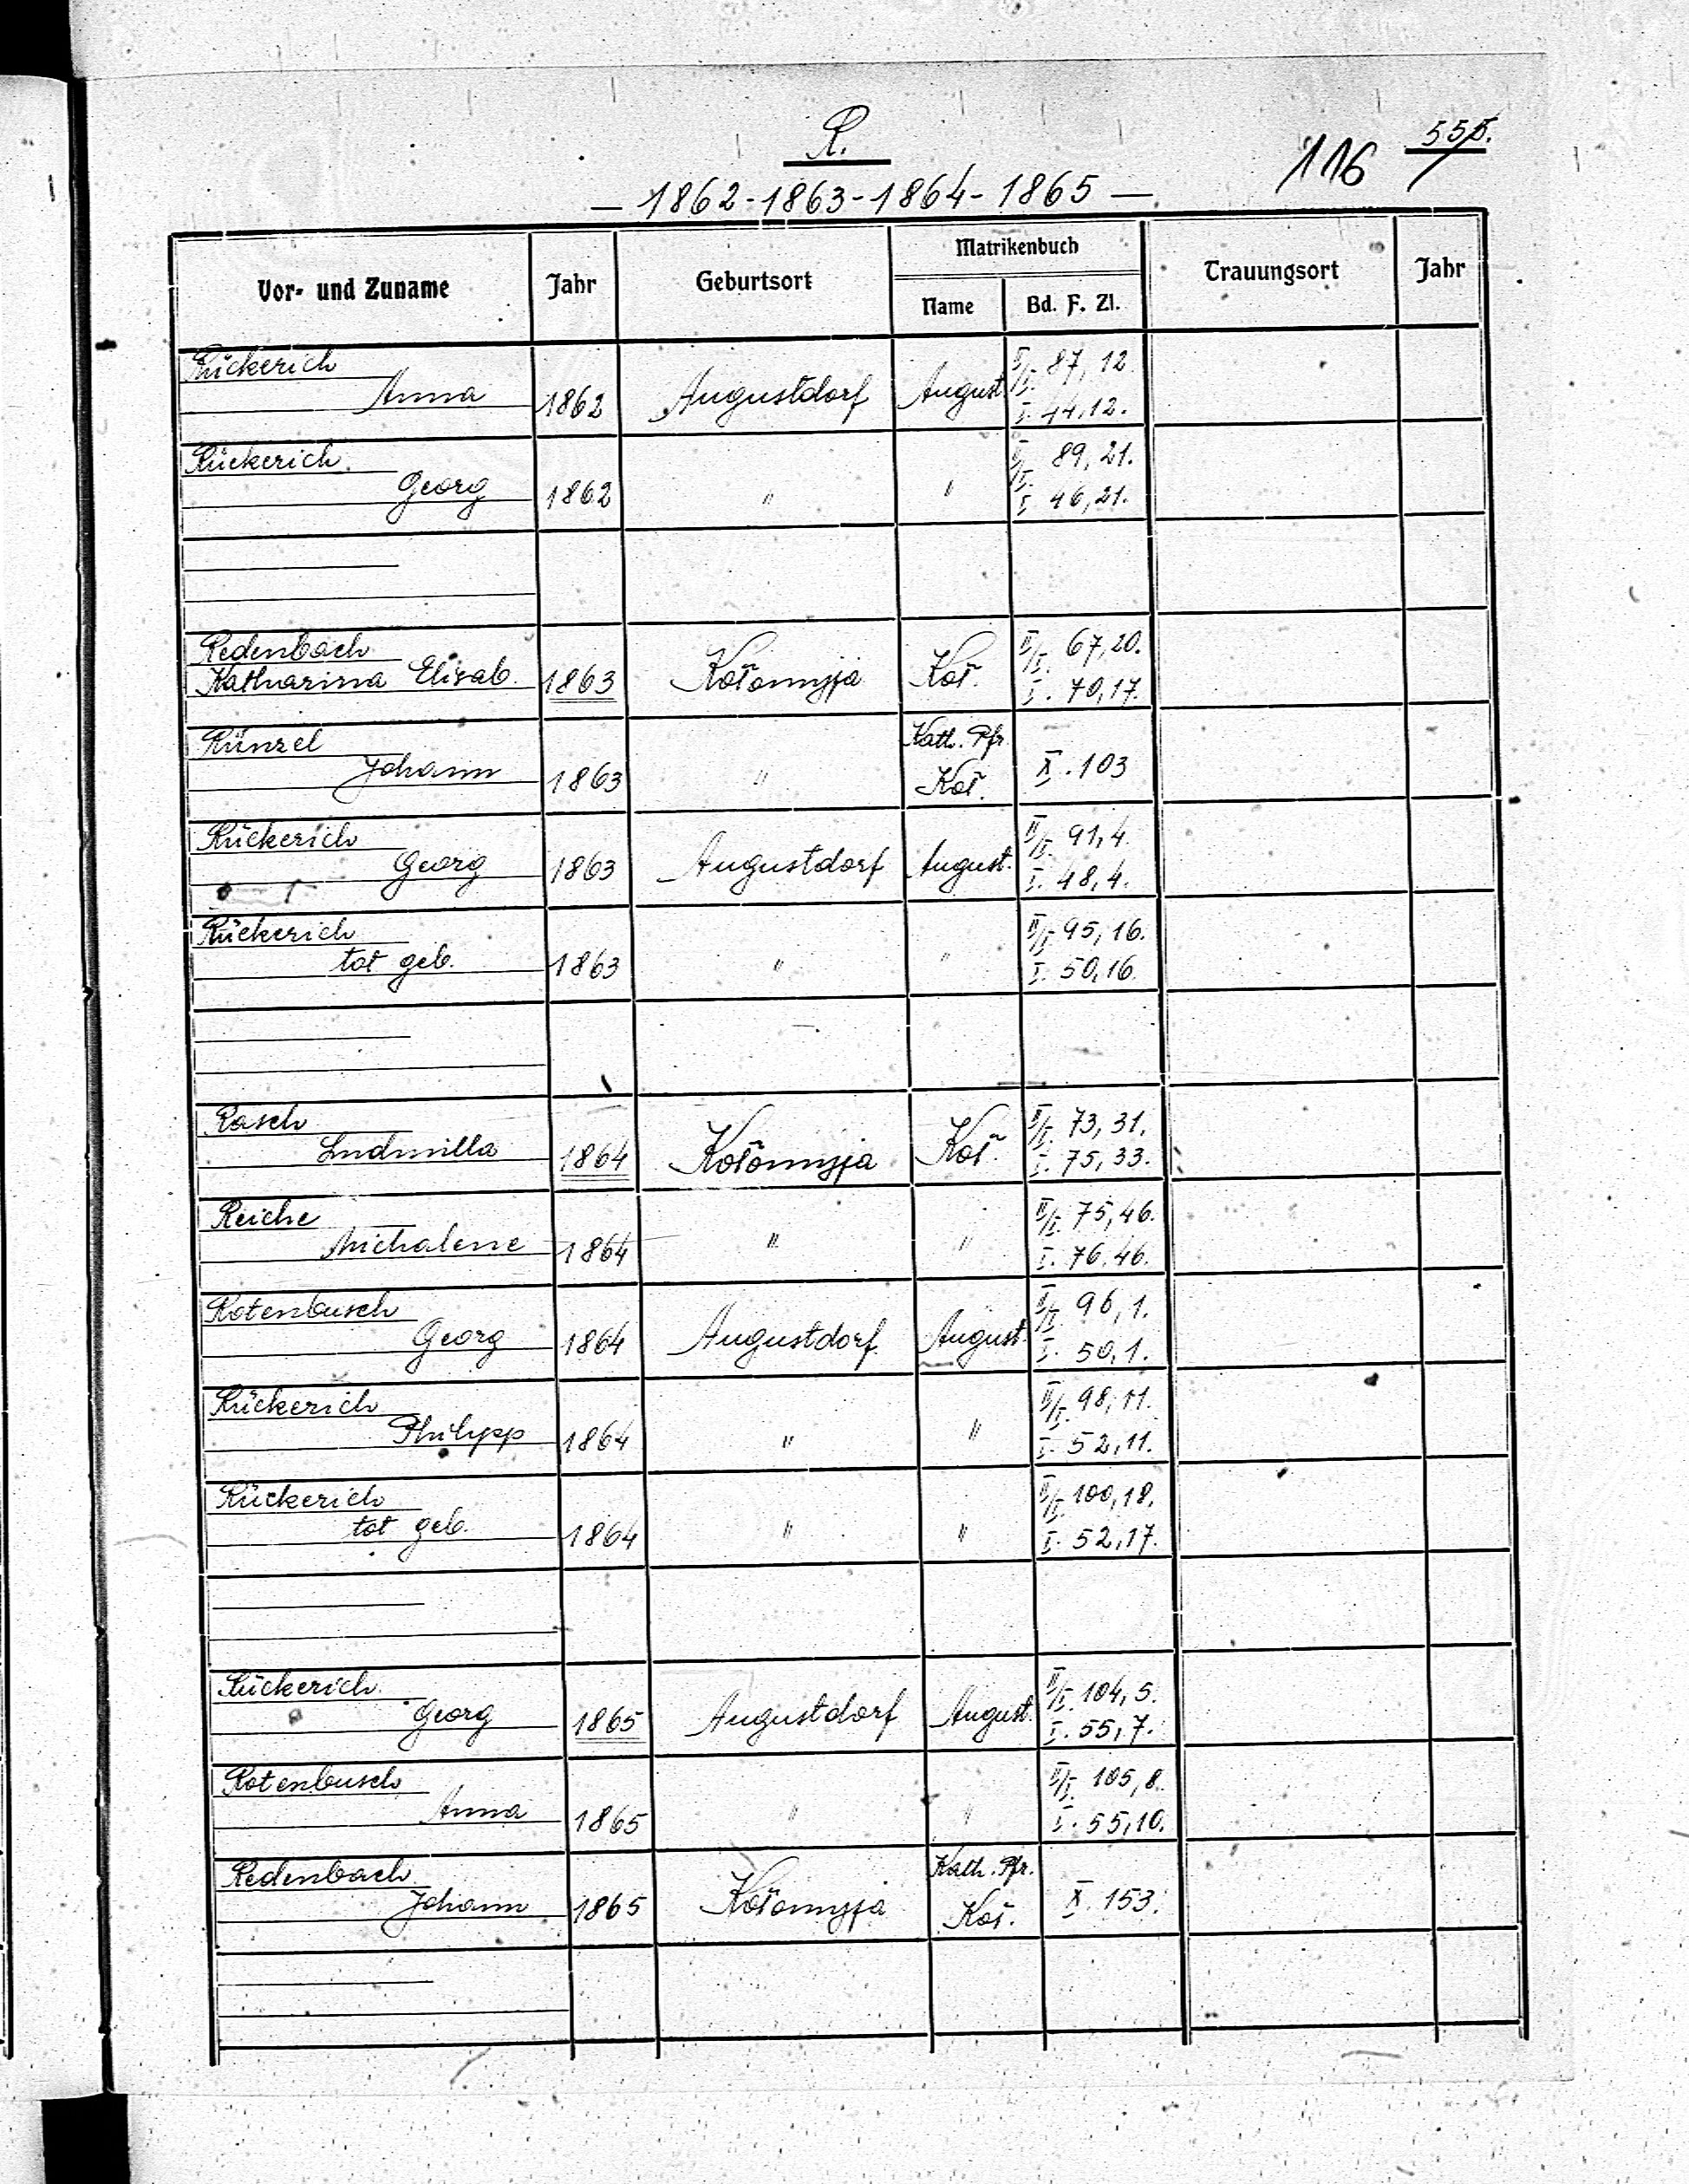 R.
116 555.
— 1862-1863-1864-1865 —
Vor- und Zuname Jahr Geburtsort Matrikenbuch Trauungsort Jahr
Name Bd. F. Zl.
Rückerich II/I. 87, 12.
Anna 1862 Augustdorf August. I. 44, 12.
Rückerich II/I. 89, 21.
Georg 1862 " " I. 46, 21.
Redenbach II/I. 67, 20.
Katharina Elisab. 1863 Kołomyja Koł. I. 70, 17.
Künzel Kath. Pfr.
Johann 1863 " Koł. X. 103
Rückerich II/I. 91, 4.
Georg 1863 Augustdorf August. I. 48, 4.
Rückerich II/I. 95, 16.
tot geb. 1863 " " I. 50, 16.
Rasch II/I. 73, 31.
Ludmilla 1864 Kołomyja Koł. I. 75, 33.
Reiche II/I. 75, 46.
Michalene 1864 " " I. 76, 46.
Rotenbusch II/I. 96, 1.
Georg 1864 Augustdorf August. I. 50, 1.
Rückerich II/I. 98, 11.
Philipp 1864 " " I. 52, 11.
Rückerich II/I. 100, 18.
tot geb. 1864 " " I. 52, 17.
Rückerich II/I. 104, 5.
Georg 1865 Augustdorf August. I. 55, 7.
Rotenbusch II/I. 105, 8.
Anna 1865 " " I. 55, 10.
Redenbach Kath. Pfr.
Johann 1865 Kołomyja Koł. X. 153.